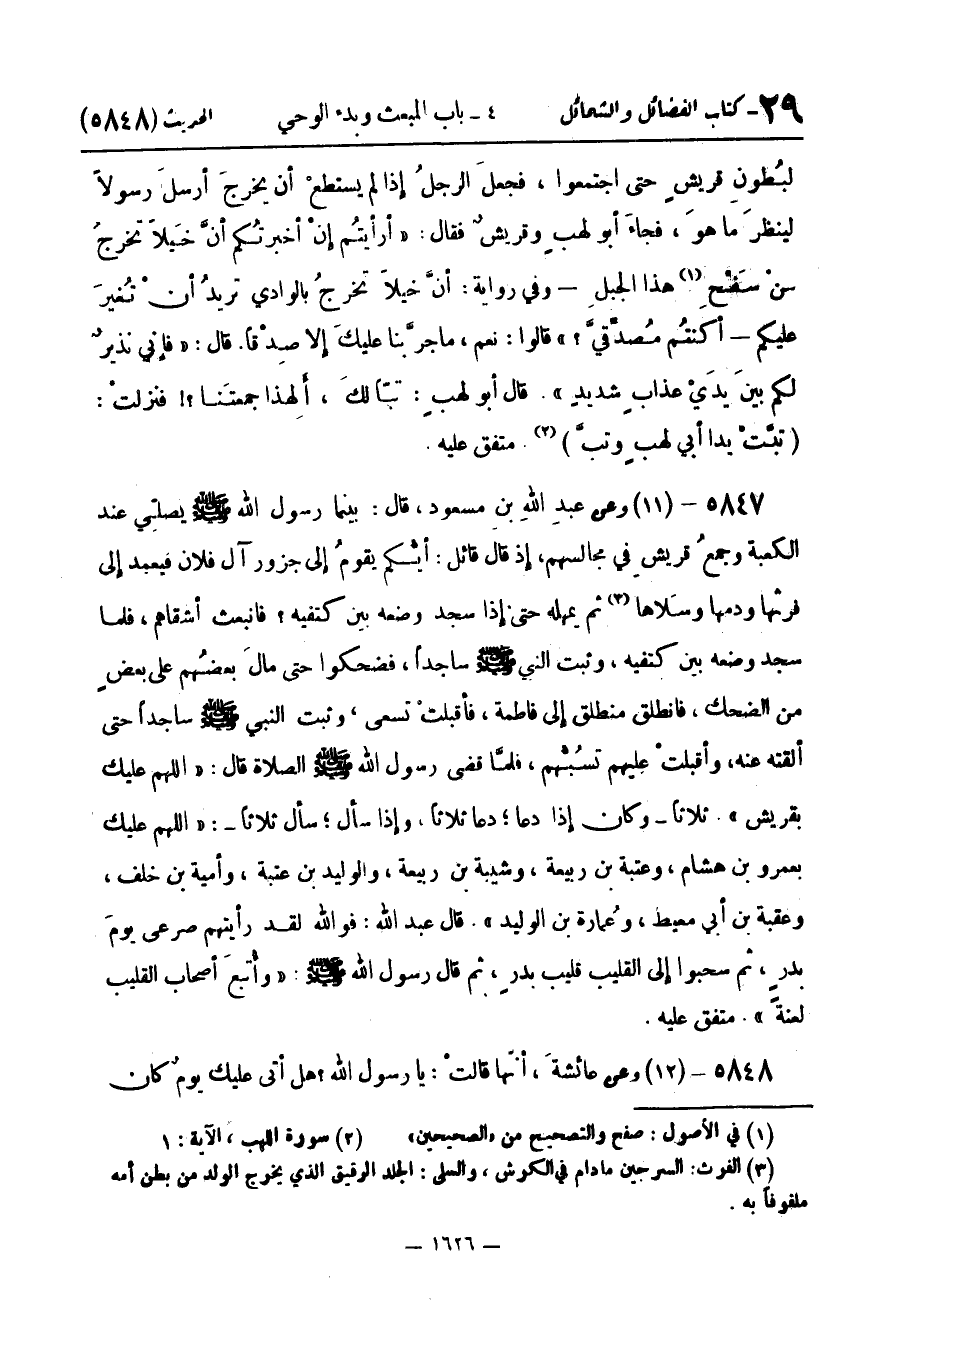 ٢٩ ـ كتاب الفضائل والشمائل ٤ ـ باب المبعث وبدء الوحي الحديث (٥٨٤٨)
لبُطونِ قريشٍ حتى اجتمعوا ، فجعلَ الرجلُ إذا لم يستطعْ أن يخرجَ أرسلَ رسولاً
لينظرَ ما هوَ ، فجاءَ أبو لهبٍ وقريشٌ فقال : « أرأيتُم إنْ أخبرتُكم أنَّ خَيلاً تخرجُ
منْ سَفْحِ (١) هذا الجبلِ — وفي رواية : أنَّ خيلاً تخرجُ بالوادي تريدُ أنْ تُغيرَ
عليكم — أكنتُم مُصدِّقيَّ ؟ » قالوا : نعم ، ماجرَّبنا عليكَ إلا صِدْقاً. قال : « فإني نذيرٌ
لكم بينَ يدَيْ عذابٍ شديدٍ » . قال أبو لهبٍ : تبّاً لكَ ، ألِهذا جمعتَنا ؟! فنزلتْ :
( تبَّتْ يدا أبي لهبٍ وتبَّ ) (٢) . متفق عليه .
٥٨٤٧ – (١١) وعن عبدِ اللهِ بنِ مسعود ، قال : بينما رسول الله ﷺ يصلّي عند
الكعبة وجمعُ قريشٍ في مجالسهم، إذ قال قائل : أيُّكم يقومُ إلى جزور آل فلان فيعمد إلى
فرثها ودمها وسَلاها (٣) ثم يمهله حتى إذا سجد وضعه بين كتفيه ؟ فانبعث أشقاهم ، فلما
سجد وضعه بين كتفيه ، وثبت النبي ﷺ ساجداً ، فضحكوا حتى مالَ بعضُهم على بعضٍ
من الضحك ، فانطلق منطلق إلى فاطمة ، فأقبلتْ تسعى ، وثبت النبي ﷺ ساجداً حتى
ألقته عنه، وأقبلتْ عليهم تسُبُّهم ، فلمَّا قضى رسول الله ﷺ الصلاة قال : « اللهم عليك
بقريش » . ثلاثاً ـ وكان إذا دعا ؛ دعا ثلاثاً ، وإذا سأل ؛ سأل ثلاثاً ـ : « اللهم عليك
بعمرو بن هشام ، وعتبة بن ربيعة ، وشيبة بن ربيعة ، والوليد بن عتبة ، وأمية بن خلف ،
وعقبة بن أبي معيط ، وعُمارة بن الوليد » . قال عبد الله : فوالله لقد رأيتهم صرعى يومَ
بدرٍ ، ثم سحبوا إلى القليب قليب بدرٍ ، ثم قال رسول الله ﷺ : « وأُتبعَ أصحاب القليب
لعنةً » . متفق عليه .
٥٨٤٨ – (١٢) وعن عائشةَ ، أنّها قالتْ : يا رسول الله ؟ هل أتى عليك يومٌ كان
(١) في الأصول : صفح والتصحيح من «الصحيحين» (٢) سورة اللهب ، الآية : ١
(٣) الفرث: السرجين مادام في الكرش ، والسلى : الجلد الرقيق الذي يخرج الولد من بطن أمه
ملفوفاً به .
— ١٦٢٦ —